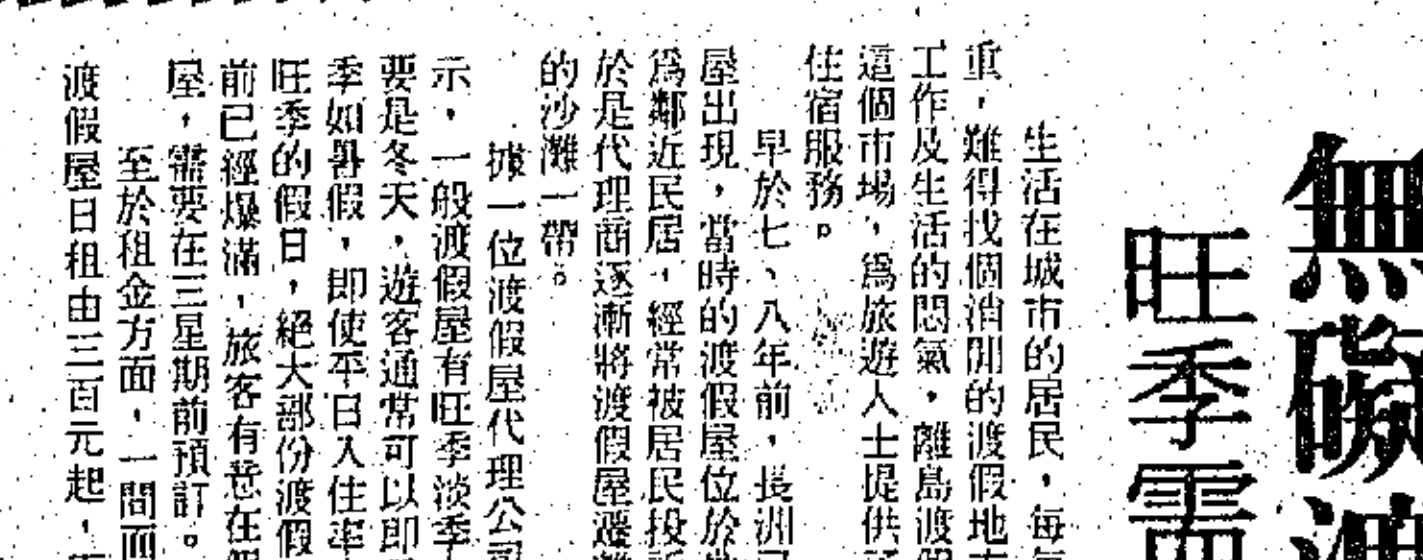 無礙渡
旺季需
生活在城市的居民，每
重，難得找個消閒的渡假地
工作及生活的悶氣，離島渡假
這個市場，爲旅遊人士提供
住宿服務。
早於七、八年前，長洲已
屋出現，當時的渡假屋位於
爲鄰近民居，經常被居民投訴
於是代理商逐漸將渡假屋遷
的沙灘一帶。
據一位渡假屋代理公司
示，一般渡假屋有旺季淡季
要是冬天，遊客通常可以即
季如暑假，即使平日入住率
旺季的假日，絕大部份渡假
前已經爆滿，旅客有意在假
屋，需要在三星期前預訂。
至於租金方面，一間面
渡假屋日租由三百元起，